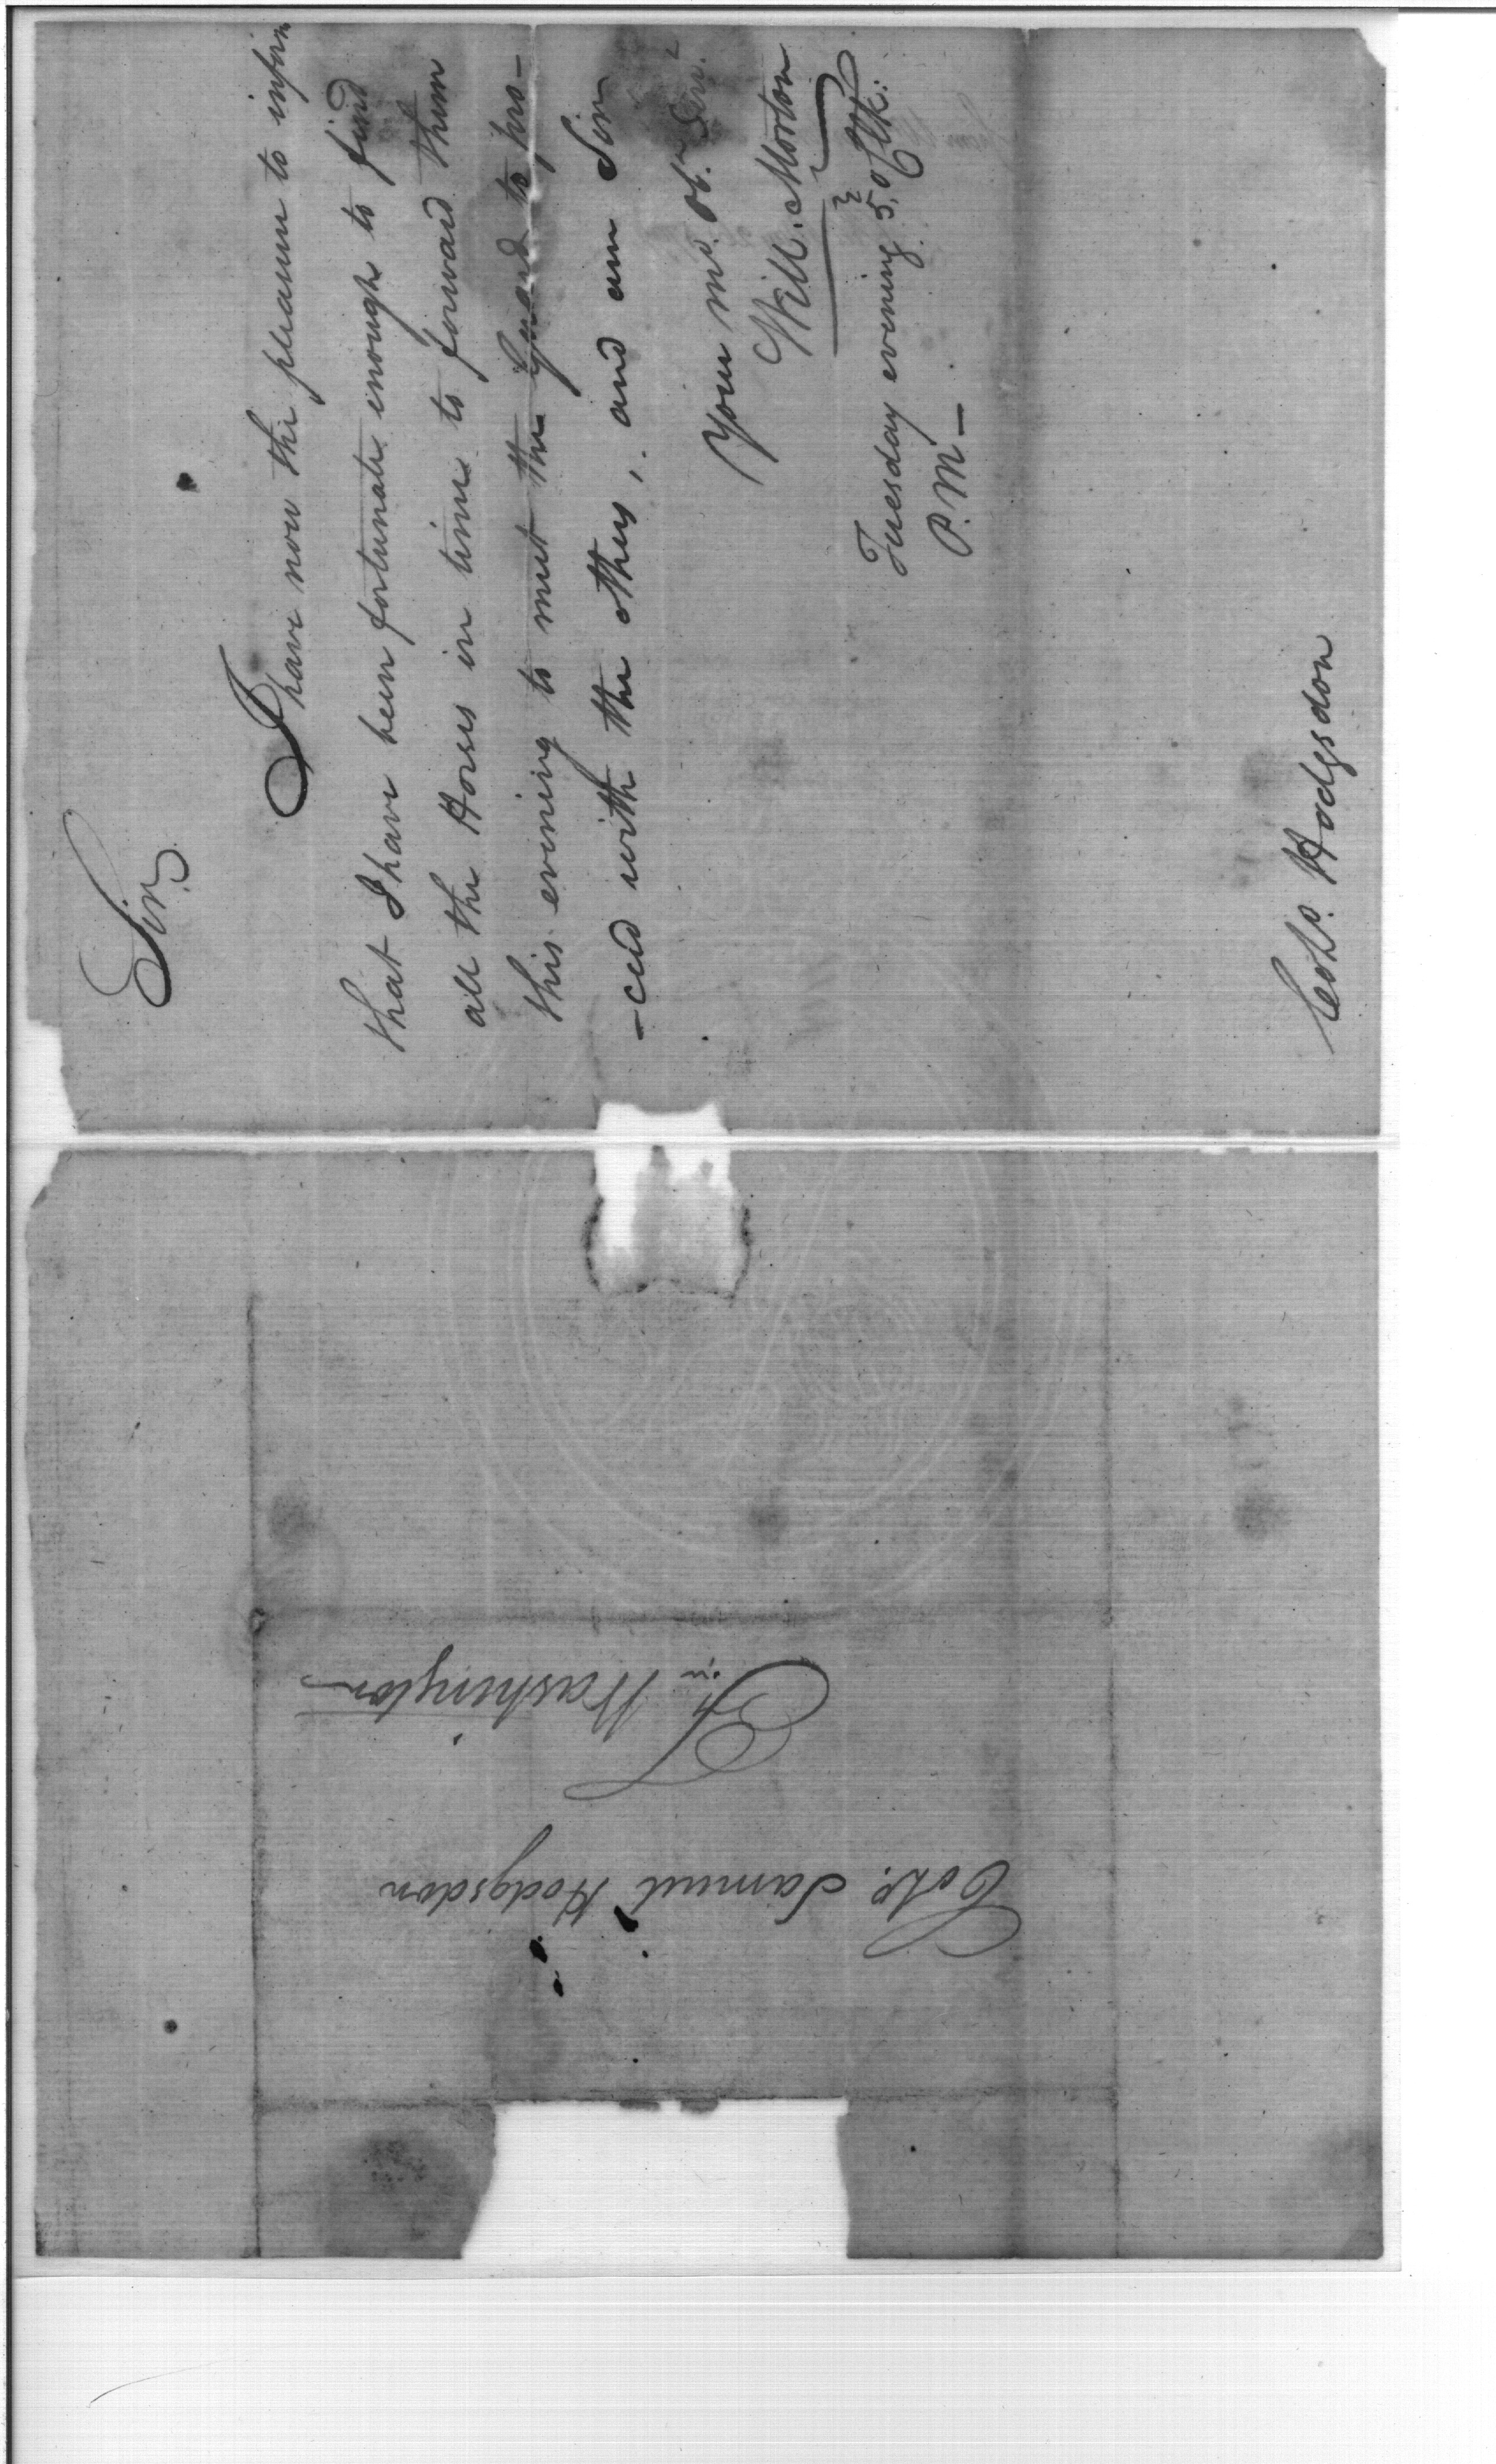 Sir,
I have now the pleasure to inform
that I have been fortunate enough to find
all the Horses in time to forward them
this evening to meet the Guard to pro-
-ceed with the others, and am Sir
Your mo. ob. Serv.t
Will. Morton
Tuesday evening 5, oClk:
P.M. —
Colo. Hodgsdon
Colo. Samuel Hodgsdon
Ft. Washington